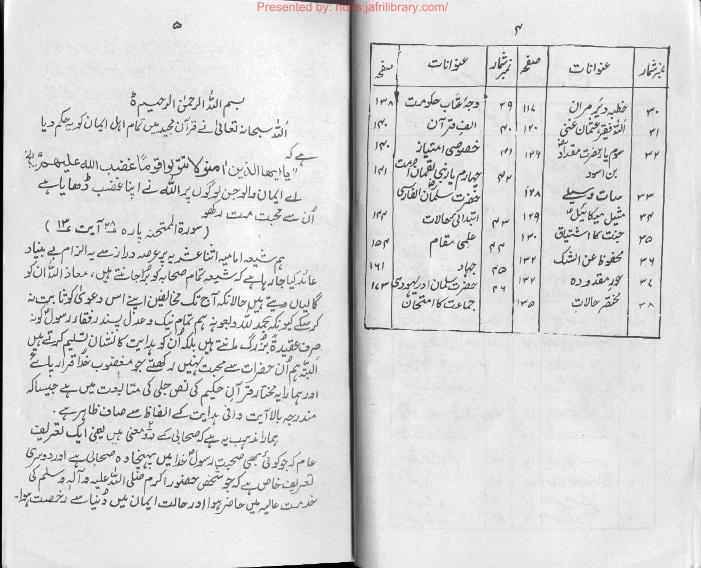 Presented by: https:jafrilibrary.com/
۴
نمبر شمار عنوانات صفحہ نمبر شمار عنوانات صفحہ
۳۰ خطبہ دیگر مران ۱۱۷ ۳۹ وجۂ عتاب حکومت ۱۳۸
۳۱ اللہ فقیر عثمان غنی ۱۲۰ ۴۰ الف قرآن ۱۴۰
۳۲ سوم یار حضرت مقداد ۱۲۶ ۴۱ خصوصی امتیاز ۱۴۰
بن اسود ۴۲ چہارم یار نبی لقمان امت ۱۴۱
۳۳ سات وسیلے ۱۲۸ حضرت سلمان الفارسی
۳۴ مثیل میکائیل ۱۲۹ ۴۳ ابتدائی حالات ۱۴۴
۳۵ جنت کا اشتیاق ۱۳۰ ۴۴ علمی مقام ۱۵۴
۳۶ محفوظ عن الشک ۱۳۲ ۴۵ جہاد ۱۶۱
۳۷ مقدودہ ۱۳۲ ۴۶ حضرت سلمان اور یہودی ۱۷۳
۳۸ مختصر حالات ۱۳۵ جماعت کا امتحان
۵
بسم اللہ الرحمٰن الرحیم
اللہ سبحانہ تعالیٰ نے قرآن مجید میں تمام اہل ایمان کو یہ حکم دیا
ہے کہ
"یا ایھا الذین اٰمنو لا تتولوا قوما غضب اللہ علیھم
اے ایمان والو جن لوگوں پر اللہ نے اپنا غضب ڈھایا ہے
اُن سے محبت مت رکھو
(سورۃ الممتحنہ پارہ ۲۸ آیت ۱۳)
ہم شیعہ امامیہ اثنا عشریہ پر عرصہ دراز سے یہ الزام بے بنیاد
عائد کیا جا رہا ہے کہ شیعہ تمام صحابہ کو بُرا جانتے ہیں، معاذ اللہ ان کو
گالیاں دیتے ہیں حالانکہ آج تک مخالفین اپنے اس دعویٰ کو ثابت نہ
کر سکے کیونکہ بحمد للہ وبعونہ ہم تمام نیک و عدل پسند رفقاء رسولؐ کو نہ
صرف عقیدۃً بزرگ مانتے ہیں بلکہ اُن کو ہدایت کا نشان تسلیم کرتے ہیں
البتہ ہم اُن حضرات سے محبت نہیں رکھتے جو مغضوب خدا قرار پائے
اور ہمارا یہ مختار قرآن حکیم کی نص جلی کی متابعت میں ہے جیسا کہ
مندرجہ بالا آیت وافی ہدایت کے الفاظ سے صاف ظاہر ہے۔
ہمارا مذہب یہ ہے کہ صحابی کے دو معنی ہیں یعنی ایک تعریف
عام کہ جو کوئی بھی صحبت رسولؐ خدا میں پہنچا وہ صحابی ہے اور دوسری
تعریف خاص ہے کہ جو شخص حضور اکرم صلی اللہ علیہ و آلہ وسلم کی
خدمت عالیہ میں حاضر ہوا اور حالت ایمان میں دُنیا سے رخصت ہوا۔